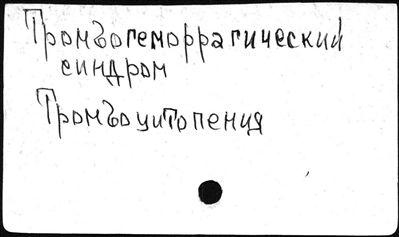 Тромбогеморрагический
синдром
Тромбоцитопения